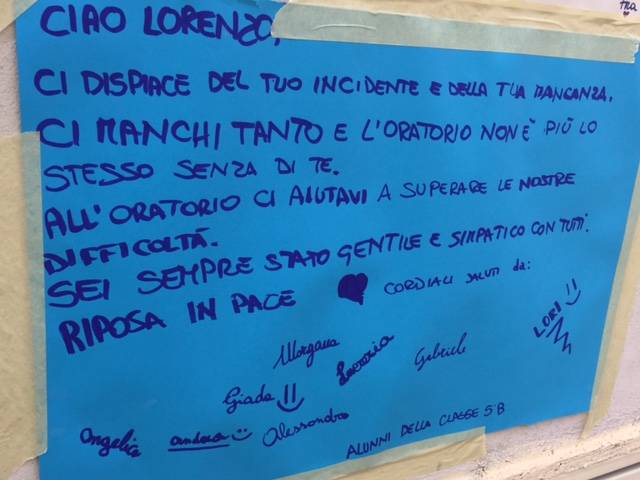 CIAO LORENZO,
CI DISPIACE DEL TUO INCIDENTE E DELLA TUA MANCANZA.
CI MANCHI TANTO E L'ORATORIO NON È PIÙ LO
STESSO SENZA DI TE.
ALL'ORATORIO CI AIUTAVI A SUPERARE LE NOSTRE
DIFFICOLTÀ.
SEI SEMPRE STATO GENTILE E SIMPATICO CON TUTTI.
RIPOSA IN PACE
CORDIALI SALUTI da:
LORI
Morgana
Lucrezia
Gabriele
Giada
Angelica
andrea
Alessandro
ALUNNI DELLA CLASSE 5ªB